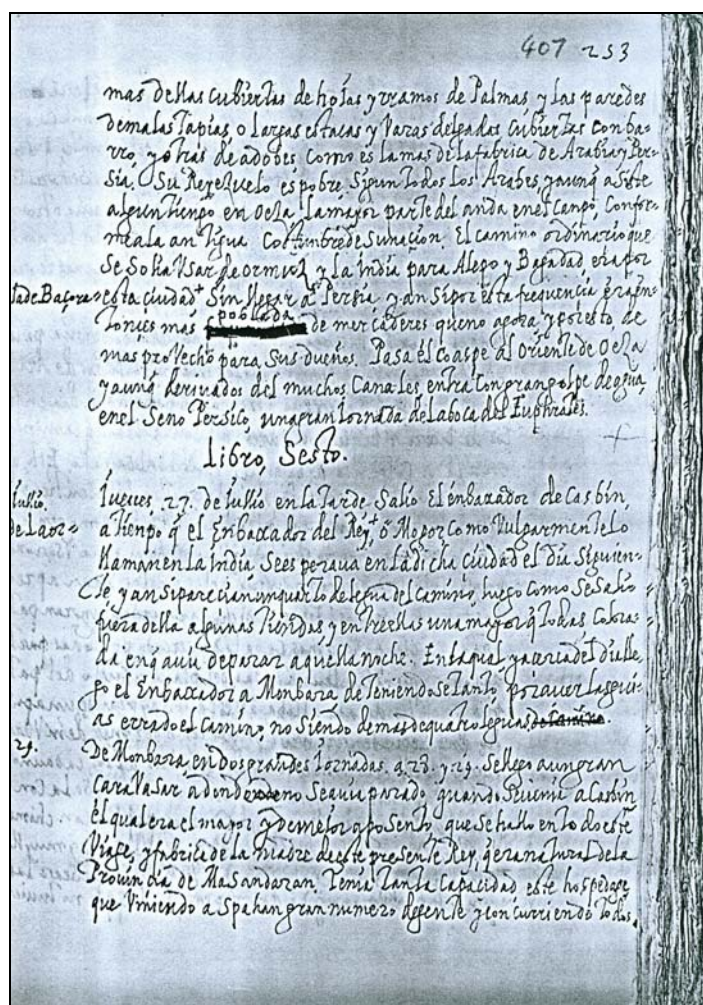 407 253
mas dellas cubiertas de hojas y rramos de Palmas, y las paredes
de malas tapias, o largas estacas y Varas delgadas cubiertas con ba-
rro, y otras de adobes como es la mas de la fabrica de Arabia y Per-
sia. Su Reyezuelo es pobre, Sigun todos los Arabes, y aunq̃ asiste
algun tienpo en Oeza, la mayor parte del anda en el Canpo, Confor-
me a la antigua Costumbre de su nacion. El camino ordinario que
se Solia Usar de Ormuz, y la india para Alepo y Bagadad era por
sta de Baçora= esta ciudad+ Sin llegar a Persia y ansi por esta frequencia era en-
tonces mas poblada de mercaderes que no agora y por esto, de
mas provecho para Sus dueños. Pasa el Coaspe al Oriente de Oeza
y aunq̃ derivados del muchos Canales, entra con gran golpe de agua,
en el Seno Persico, una gran Jornada de la boca del Euphrates.
Libro, Sesto.
Jullio. Jueves .27. de Jullio en la tarde Salio El enbaxador de Casbin,
de Laor= a tienpo q̃ el Enbaxador del Rey+, ô Mogor como Vulgarmente lo
llaman en la India Se esperava en la dicha ciudad el dia Siguien-
te, y ansi parecian un quarto de legua del camino, luego como Se Salio
fuera della algunas tiendas y entre ellas una mayor q̃ todas Colora-
da en q̃ avia de parar aquella noche. En la qual, ya cerca del dia lle-
go el Enbaxador a Monbara deteniendose tanto, por aver las gui-
as errado el camino, no siendo de mas de quatro leguas
29. De Monbara en dos grandes Jornadas a 28. y 29. Se llego a un gran
CaraVasar a donde no Se avia parado quando Se venia a Casbin,
el qual era el mayor y de mejor aposento, que Se hallo en todo este
Viage, y fabrica de la madre de este presente Rey, q̃ era natural de la
Provincia de Masandaran. Tenia tanta Capacidad este hospedage,
que Viniendo a Spahan gran numero de gente y concurriendo todos,